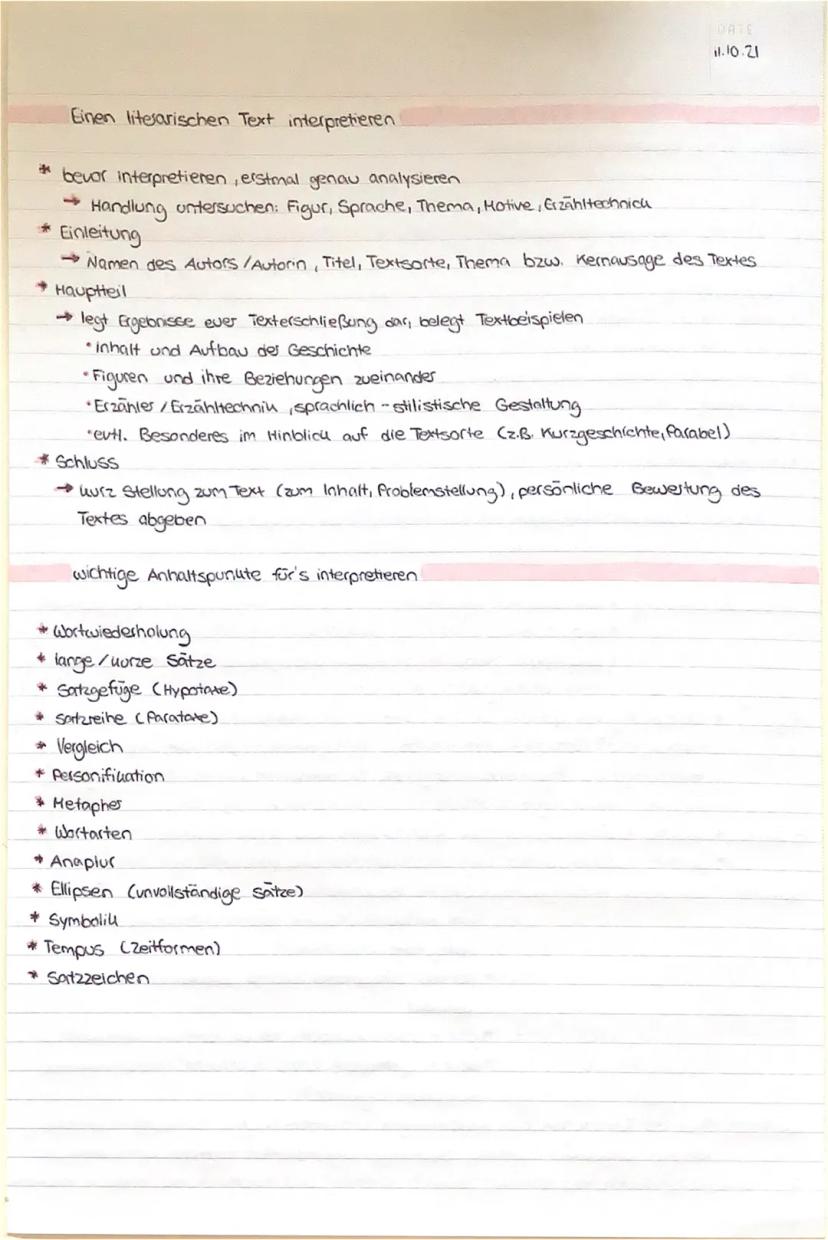 DATE
11.10.21
Einen literarischen Text interpretieren
* bevor interpretieren, erstmal genau analysieren
→ Handlung untersuchen: Figur, Sprache, Thema, Motive, Erzähltechnick
* Einleitung
→ Namen des Autors/Autorin, Titel, Textsorte, Thema bzw. Kernausage des Textes
* Hauptteil
→ legt Ergebnisse euer Texterschließung dar, belegt Textbeispielen
• inhalt und Aufbau der Geschichte
• Figuren und ihre Beziehungen zueinander
• Erzähler/Erzähltechnik, sprachlich-stilistische Gestaltung
• evtl. Besonderes im Hinblick auf die Textsorte (z.B. Kurzgeschichte, Parabel)
* Schluss
→ kurz Stellung zum Text (zum Inhalt, Problemstellung), persönliche Bewertung des
Textes abgeben
wichtige Anhaltspunkte für's interpretieren
* Wortwiederholung
* lange/kurze Sätze
* Satzgefüge (Hypotaxe)
* Satzreihe (Parataxe)
* Vergleich
* Personifikation
* Metapher
* Wortarten
* Anapher
* Ellipsen (unvollständige Sätze)
* Symbolik
* Tempus (Zeitformen)
* Satzzeichen